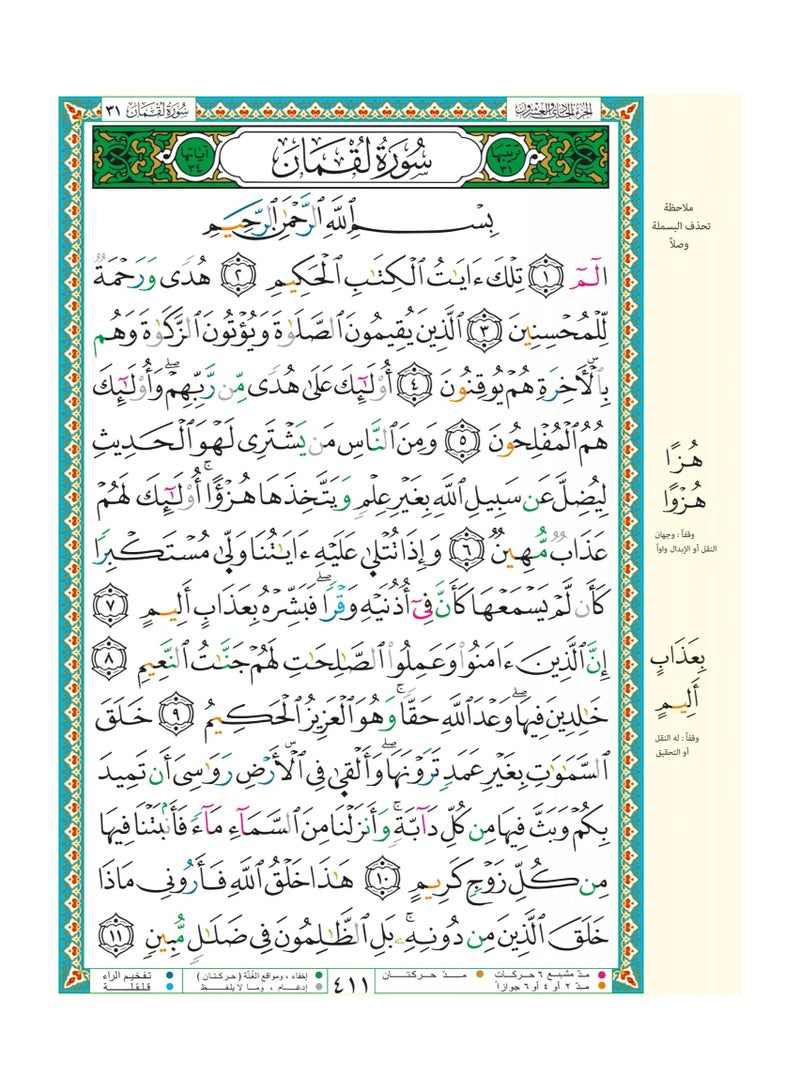 الجزء الحادي والعشرون
سُورَةُ لُقۡمَان ٣١
ترتيبها ٣١
سُورَةُ لُقۡمَان
آياتها ٣٤
بِسۡمِ ٱللَّهِ ٱلرَّحۡمَٰنِ ٱلرَّحِيمِ
الٓمٓ ١ تِلۡكَ ءَايَٰتُ ٱلۡكِتَٰبِ ٱلۡحَكِيمِ ٢ هُدٗى وَرَحۡمَةٞ
لِّلۡمُحۡسِنِينَ ٣ ٱلَّذِينَ يُقِيمُونَ ٱلصَّلَوٰةَ وَيُؤۡتُونَ ٱلزَّكَوٰةَ وَهُم
بِٱلۡأٓخِرَةِ هُمۡ يُوقِنُونَ ٤ أُوْلَٰٓئِكَ عَلَىٰ هُدٗى مِّن رَّبِّهِمۡۖ وَأُوْلَٰٓئِكَ
هُمُ ٱلۡمُفۡلِحُونَ ٥ وَمِنَ ٱلنَّاسِ مَن يَشۡتَرِي لَهۡوَ ٱلۡحَدِيثِ
لِيُضِلَّ عَن سَبِيلِ ٱللَّهِ بِغَيۡرِ عِلۡمٖ وَيَتَّخِذَهَا هُزۡؤًاۚ أُوْلَٰٓئِكَ لَهُمۡ
عَذَابٞ مُّهِينٞ ٦ وَإِذَا تُتۡلَىٰ عَلَيۡهِ ءَايَٰتُنَا وَلَّىٰ مُسۡتَكۡبِرٗا
كَأَن لَّمۡ يَسۡمَعۡهَا كَأَنَّ فِيٓ أُذُنَيۡهِ وَقۡرٗاۖ فَبَشِّرۡهُ بِعَذَابٍ أَلِيمٍ ٧
إِنَّ ٱلَّذِينَ ءَامَنُواْ وَعَمِلُواْ ٱلصَّٰلِحَٰتِ لَهُمۡ جَنَّٰتُ ٱلنَّعِيمِ ٨
خَٰلِدِينَ فِيهَاۖ وَعۡدَ ٱللَّهِ حَقّٗاۚ وَهُوَ ٱلۡعَزِيزُ ٱلۡحَكِيمُ ٩ خَلَقَ
ٱلسَّمَٰوَٰتِ بِغَيۡرِ عَمَدٖ تَرَوۡنَهَاۖ وَأَلۡقَىٰ فِي ٱلۡأَرۡضِ رَوَٰسِيَ أَن تَمِيدَ
بِكُمۡ وَبَثَّ فِيهَا مِن كُلِّ دَآبَّةٖۚ وَأَنزَلۡنَا مِنَ ٱلسَّمَآءِ مَآءٗ فَأَنۢبَتۡنَا فِيهَا
مِن كُلِّ زَوۡجٖ كَرِيمٍ ١٠ هَٰذَا خَلۡقُ ٱللَّهِ فَأَرُونِي مَاذَا
خَلَقَ ٱلَّذِينَ مِن دُونِهِۦۚ بَلِ ٱلظَّٰلِمُونَ فِي ضَلَٰلٖ مُّبِينٖ ١١
ملاحظة
تحذف البسملة
وصلاً
هُزًا
هُزۡوًا
وقفاً : وجهان
النقل أو الإبدال واواً
بِعَذَابٍ
أَلِيمٍ
وقفاً : له النقل
أو التحقيق
مدّ مشبع ٦ حركات
مدّ حركتان
مدّ ٢ أو ٤ أو ٦ جوازاً
٤١١
إخفاء ، ومواقع الغُنَّة (حركتان)
إدغام ، وما لا يلفظ
تفخيم الراء
قلقلة